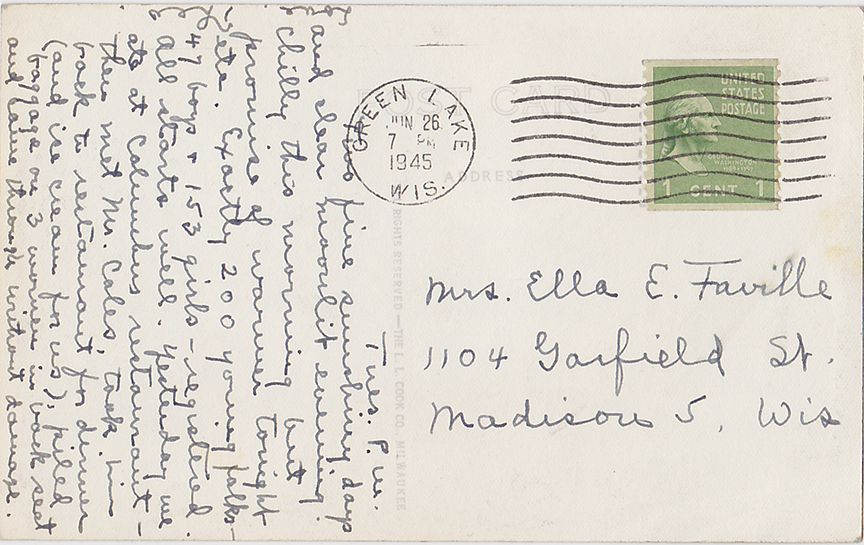 Tues. P.M.
Two fine sunshiny days
and clear moonlit evening.
Chilly this morning but
promise of warmer tonight
etc. Exactly 200 young folks -
47 boys + 153 girls - registered.
All starts well. Yesterday we
ate at Columbus restaurant -
then met Mr. Coles, took him
back to restaurant for dinner
(and ice cream for us), piled
baggage on 3 women in back seat
and came through without damage.
POST CARD
ADDRESS
RIGHTS RESERVED — THE L. L. COOK CO. MILWAUKEE
GREEN LAKE
JUN 26
7 PM
1945
WIS.
UNITED
STATES
POSTAGE
GEORGE
WASHINGTON
1 CENT 1
Mrs. Ella E. Faville
1104 Garfield St.
Madison 5, Wis